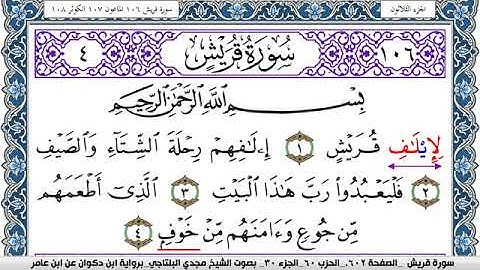 الجزء الثلاثون سورة قريش ١٠٦ الماعون ١٠٧ الكوثر ١٠٨
١٠٦ سُورَةُ قُرَيْشٍ ٤
بِسْمِ ٱللَّهِ ٱلرَّحْمَٰنِ ٱلرَّحِيمِ
لِإِيلَٰفِ قُرَيْشٍ ١ إِۦلَٰفِهِمْ رِحْلَةَ ٱلشِّتَآءِ وَٱلصَّيْفِ
٢ فَلْيَعْبُدُوا۟ رَبَّ هَٰذَا ٱلْبَيْتِ ٣ ٱلَّذِىٓ أَطْعَمَهُم
مِّن جُوعٍ وَءَامَنَهُم مِّنْ خَوْفٍۭ ٤
سورة قريش _ الصفحة ٦٠٢_ الحزب ٦٠_ الجزء ٣٠_ بصوت الشيخ مجدي البلتاجي_برواية ابن ذكوان عن ابن عامر